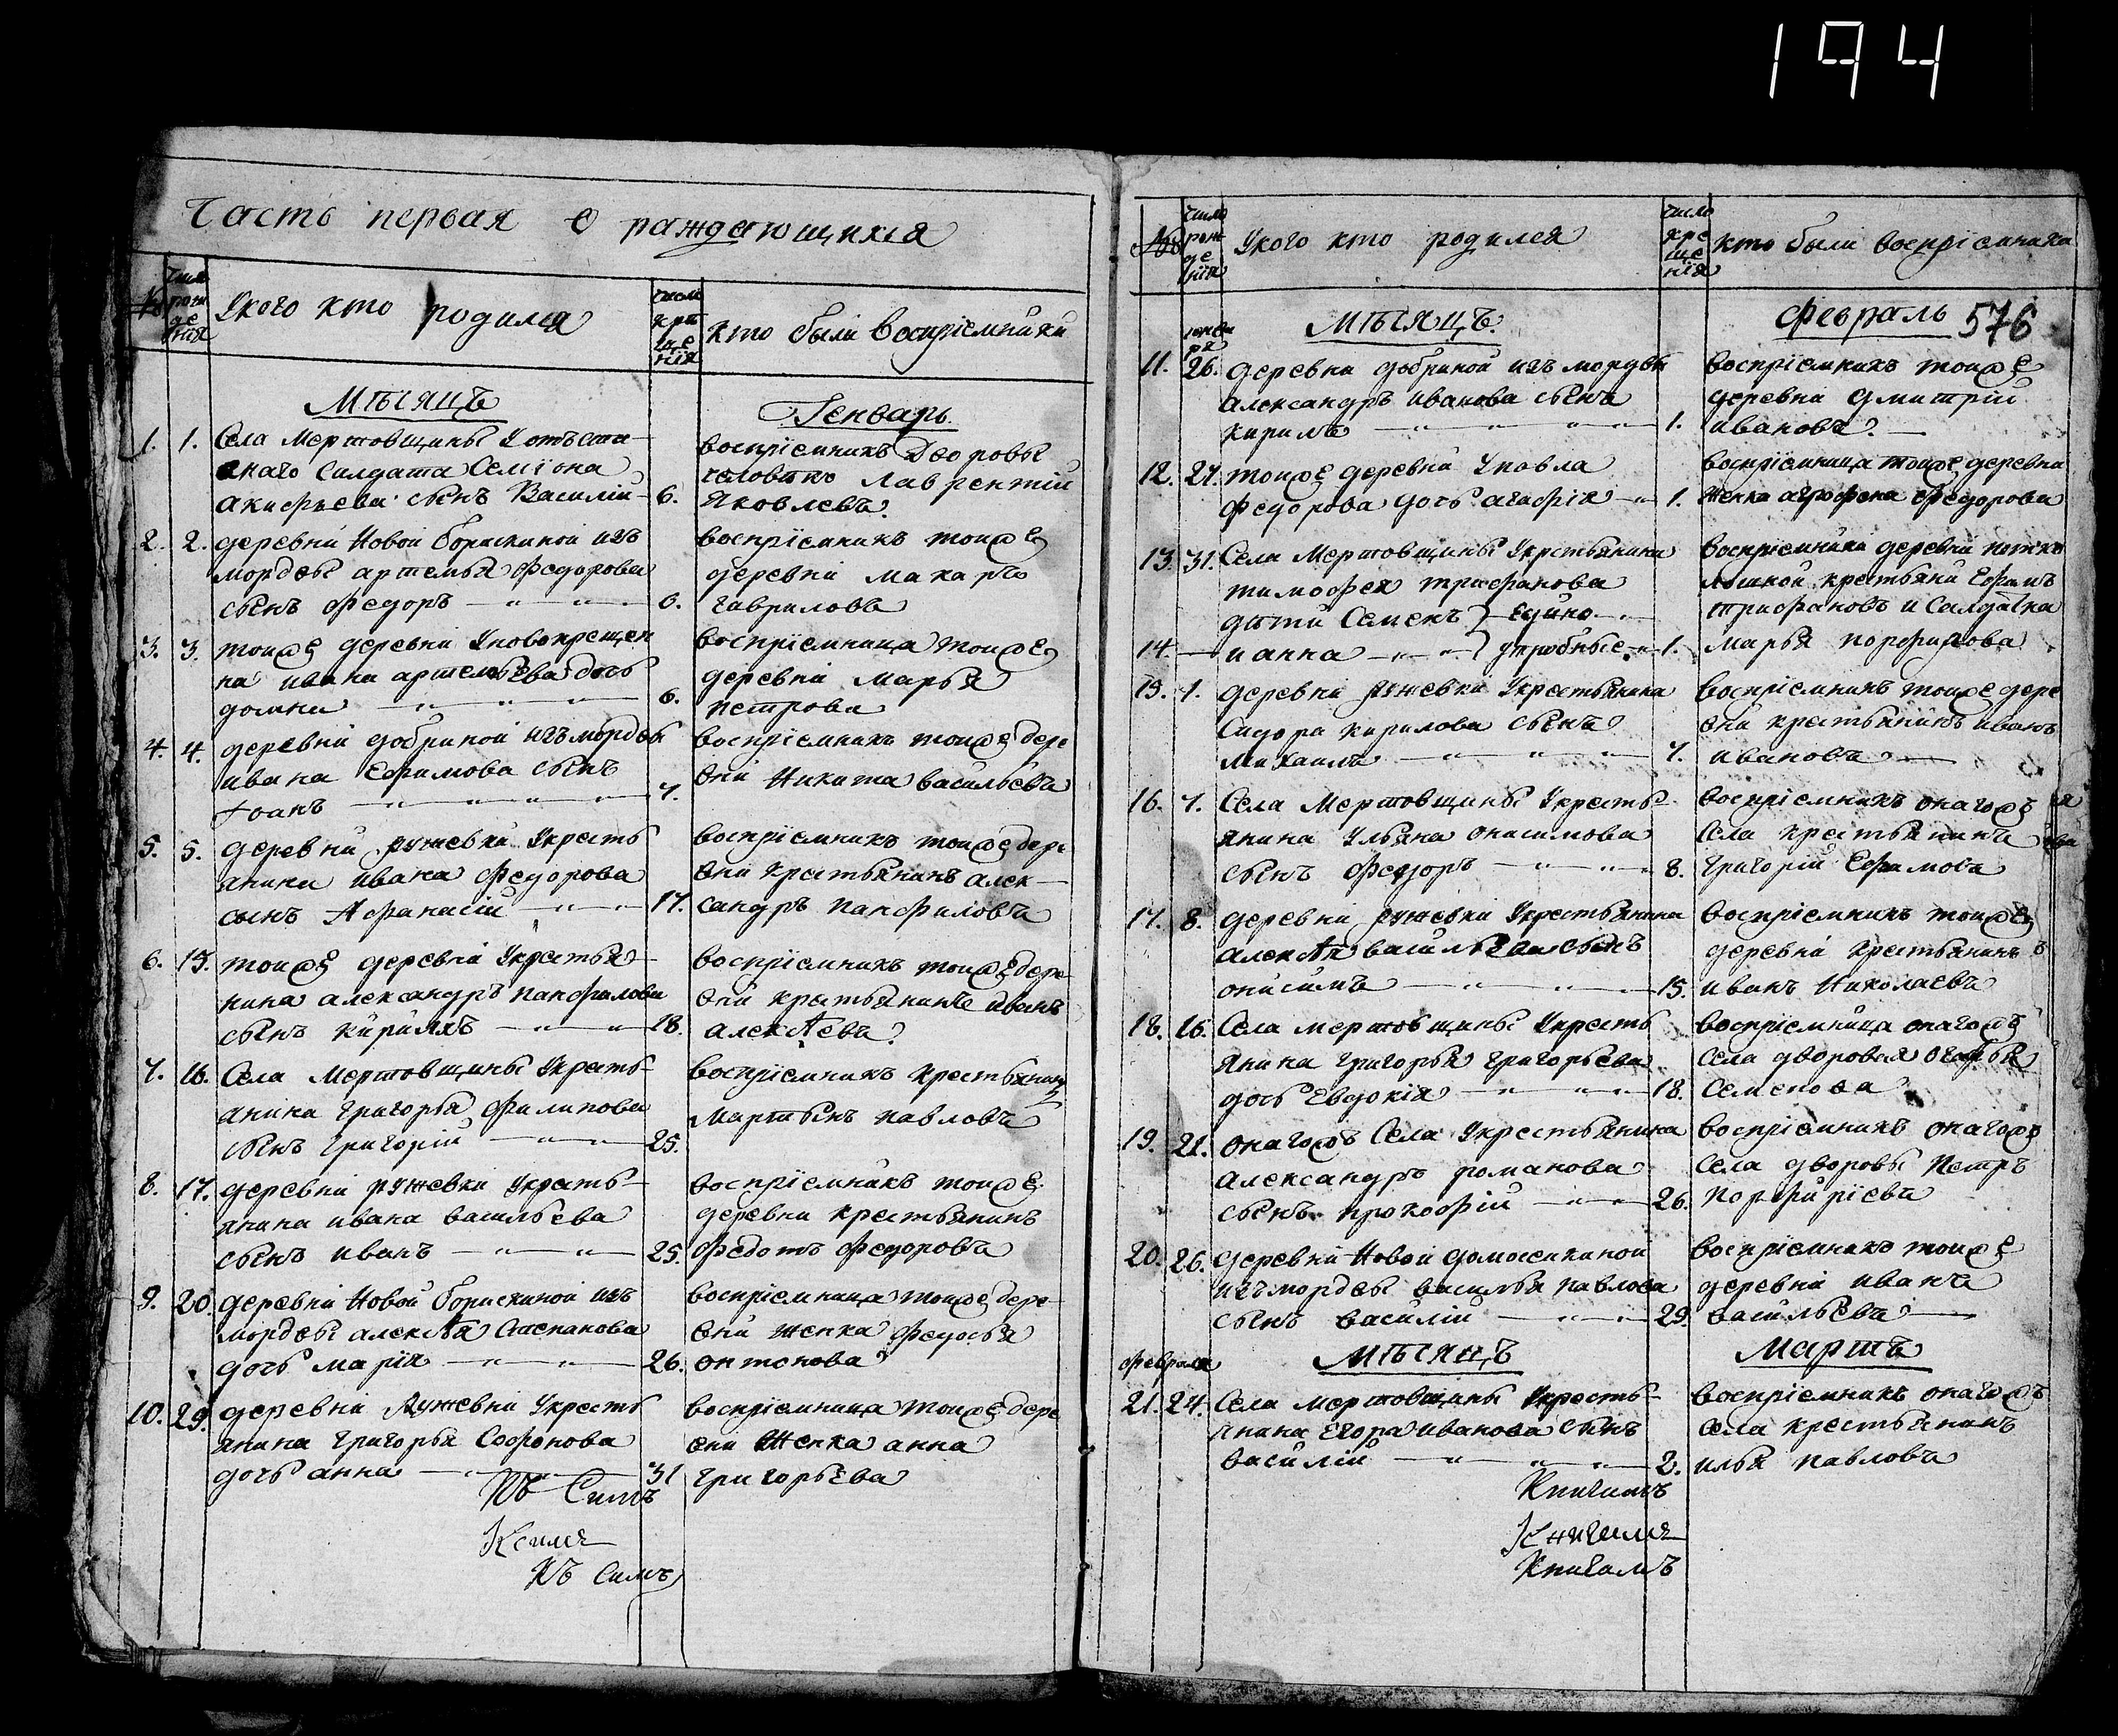 194
Часть первая о раждающихся
№
число рож де нія
У кого кто родился
число кре ще нія
кто были воспріемники
Мѣсяцъ
Генварь
1. 1. Села Мертовщины У отъста-
внаго Салдата Семіона
акифьева сынъ Василій 6.
воспріемникъ Дворовы
человѣкъ Лаврентій
Яковлевъ.
2. 2. деревни Новой борискиной изъ
мордвы артемья Федорова
сынъ Федоръ 6.
воспріемникъ тоижъ
деревни Макаръ
гавриловъ
3. 3. тоиже деревни У новокрещен
на ивана артемьева дочь
домна 6.
воспріемница тоиже
деревни Марья
петрова
4. 4. деревни добриной изъ мордвы
ивана Ефимова сынъ
Іоанъ 7.
воспріемникъ тоиже дере
вни Никита васильевъ
5. 5. деревни ружевки У кресть
янина ивана Федорова
сынъ Афанасій 17.
воспріемникъ тоиже дере
вни крестьянинъ алек-
сандръ панфиловъ
6. 15. тоиже деревни У крестья-
нина александръ панфилова
сынъ кирилъ 18.
воспріемникъ тоиже дере
вни крестьянинъ иванъ
алексѣевъ.
7. 16. Села Мертовщины У кресть-
янина григорья филипова
сынъ григорій 25.
воспріемникъ крестьянинъ
мартынъ павловъ
8. 17. деревни ружевки У кресть-
янина ивана васильева
сынъ иванъ 25.
воспріемникъ тоиже
деревни крестьянинъ
Федотъ Федоровъ
9. 20. деревни Новой борискиной изъ
мордвы алексѣя Степанова
дочь марія 26.
воспріемница тоиже дере
вни женка Федосья
онтонова
10. 29. деревни Ружевки У кресть
янина григорья Софонова
дочь анна 31
воспріемница тоиже дере
вни Женка анна
григорьева
Къ Симъ
К симъ
Къ Симъ
№
число рож де нія
У кого кто родился
число кре ще нія
кто были воспріемники
генва
ря
Мѣсяцъ
Февраль 576
11. 26. деревни добриной изъ мордвы
александръ иванова сынъ
кирилъ 1.
воспріемникъ тоиже
деревни дмитрій
ивановъ.
12. 27. тоиже деревни У павла
федорова дочь агафія 1.
воспріемница тоиже деревни
женка агрофена федорова
13. 31. Села Мертовщины У крестьянина
тимофея трифанова
дѣти Семенъ } едино
14. и анна } утробные 1.
воспріемники деревни
крестьяни Ефимъ
трифановъ и Салдатка
марья порфирова
15. 1. деревни ружевки У крестьянина
Сидора кирилова сынъ
михаилъ 7.
воспріемникъ тоиже дере
вни крестьянинъ иванъ
ивановъ
16. 7. Села Мертовщины У кресть-
янина Ульяна онисимова
сынъ Федоръ 8.
воспріемникъ онагожъ
села крестьянинъ
григорій Ефимовъ
17. 8. деревни ружевки У крестьянина
алексѣя васильева сынъ
онисимъ 15.
воспріемникъ тоиже
деревни крестьянинъ
иванъ Николаевъ
18. 16. Села мертовщины У кресть
янина григорья григорьева
дочь Евдокія 18.
воспріемница онагожъ
села дворовая
Семенова
19. 21. онагожъ Села У крестьянина
александръ романова
сынъ прокофій 26.
воспріемникъ онагожъ
села дворовы Петръ
Порфиріевъ
20. 26. деревни Новой домосекиной
изъ мордвы василья павлова
сынъ василій 29.
воспріемникъ тоиже
деревни иванъ
васильевъ
февраля
Мѣсяцъ
Мартъ
21. 24. Села мертовщины У кресть-
янина Егора иванова сынъ
василій 2.
воспріемникъ онагожъ
села крестьянинъ
илья павловъ
Книгамъ
Книгамъ
Книгамъ